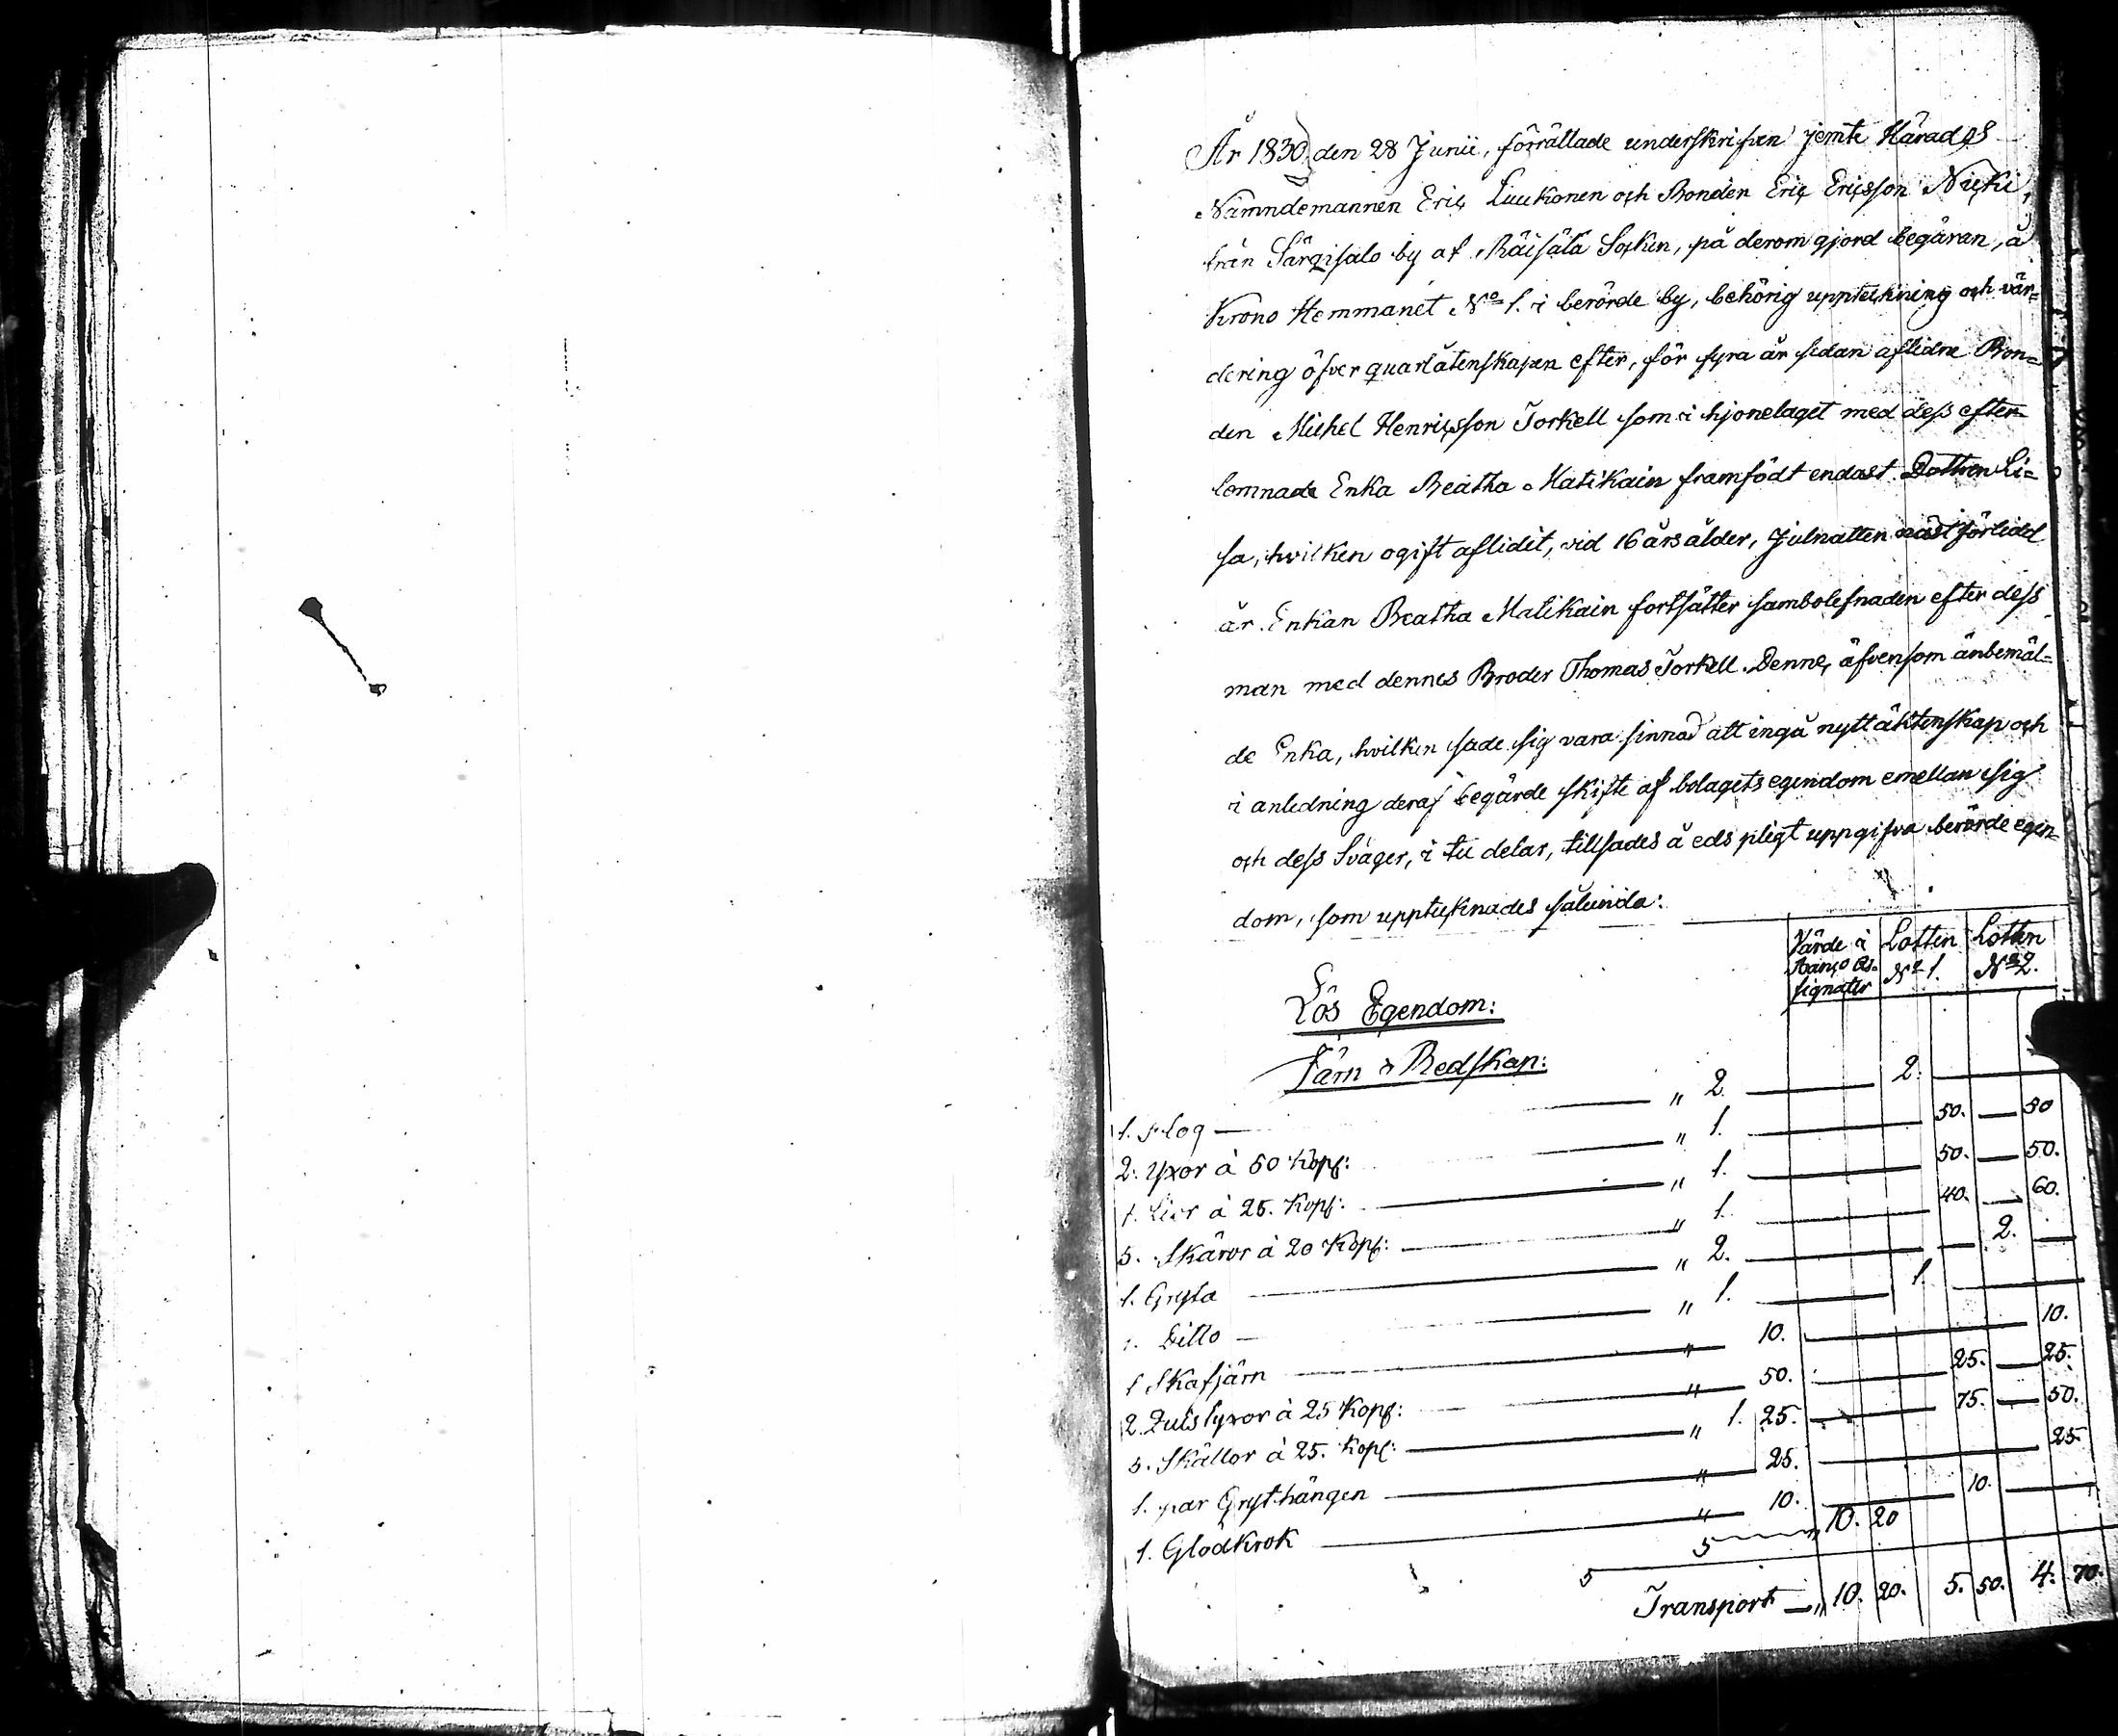 År 1830, den 28 Junii, förrättade underskrifven jemte Härads
Nämndemannen Eric Luukonen och Bonden Eric Ericsson Nicki,
från Särgisalo by af Räisälä Socken, på derom gjord begäran, å
Krono Hemmanet No 1. i berörde by, behörig uppteckning och vär=
dering öfver quarlåtenskapen efter, för fyra år sedan aflidne Bon=
den Michel Henricsson Torkell som i hjonelaget med dess efter=
lemnade Enka Beatha Matikain framfödt endast Dottren Li=
sa, hvilken ogift aflidit, vid 16 års ålder, Julnatten näst förledd
år. Enkan Beatha Matikain fortsätter sambolefnaden efter dess
man med dennes Broder Thomas Torkell. Denne, äfvensom änbemäl=
de Enka, hvilken sade sig vara sinnad att ingå nytt äktenskap och
i anledning deraf begärde skifte af bolagets egendom emellan sig
och dess Svåger, i tu delar, tillsades å eds pligt uppgifva berörde egen=
dom, som upptecknades sålunda:
Värde i Banco As= signater Lotten No 1. Lotten No 2.
Lös Egendom:
Järn & Redskap:
1. Plog — " 2. — 2. —
2. Yxor à 50 Kop: — " 1. — 50. — 50
4. Lior à 25. Kop: — " 1. — 50. — 50.
5. Skäror à 20 Kop: — " 1. — 40. — 60.
1. Gryta — " 2. — 2. —
1. Ditto — " 1. — 1. —
1 Skafjärn — " 10. — 10.
2. yxor à 25 Kop: — " 50. — 25. — 25.
5. Skällor à 25. Kop: — " 1. 25. — 75. — 50.
1. par Grythängen — " 25. — 25.
1. Glödkrok — " 10. — 10. —
5 5 " 10. 20
Transport — " 10. 20. 5. 50. 4. 70.